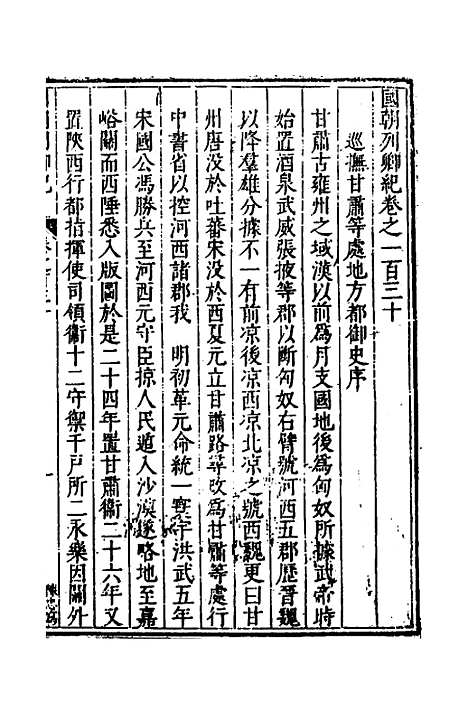 國朝列卿紀卷之一百三十
巡撫甘肅等處地方都御史序
甘肅古雍州之域漢以前為月支國地後為匈奴所據武帝時
始置酒泉武威張掖等郡以斷匈奴右臂號河西五郡歷晉魏
以降羣雄分據不一有前凉後凉西凉北凉之號西魏更曰甘
州唐没於吐蕃宋没於西夏元立甘肅路尋改為甘肅等處行
中書省以控河西諸郡我 明初革元命統一寰宇洪武五年
宋國公馮勝兵至河西元守臣掠人民遁入沙漠遂略地至嘉
峪關而西陲悉入版圖於是二十四年置甘肅衛二十六年又
置陜西行都指揮使司領衛十二守禦千戶所二永樂因關外